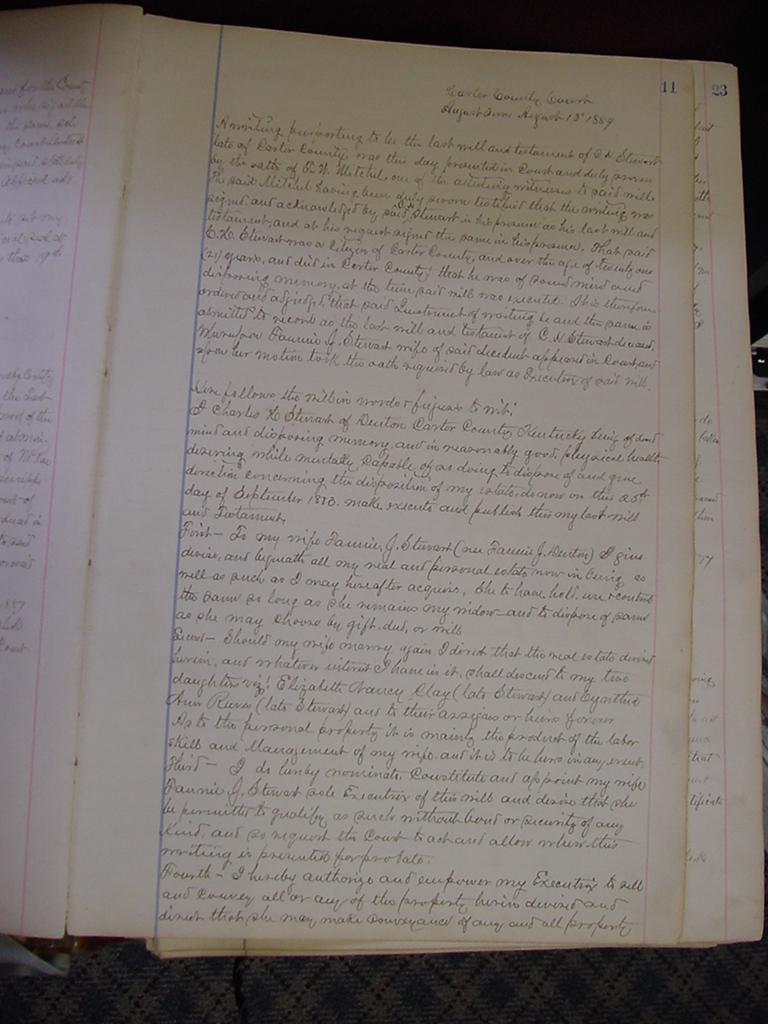 11
23
Carter County Court
August Term August 12" 1889
A writing purporting to be the last will and testament of C. N. Stewart
late of Carter County was this day presented in Court and duly proven
by the oaths of E. W. Mitchel one of the attesting witnesses to said will
The said Mitchel having been duly sworn testified that the writing was
signed and acknowledged by said Stewart in his presence as his last will and
testament, and at his request signed the same in his presence. That said
C. N. Stewart was a Citizen of Carter County, and over the age of twenty one
(21) years, and died in Carter County; that he was of sound mind and
disposing memory, at the time said will was executed. It is therefore
ordered and adjudged, that said Instrument of writing be and the same is
admitted to record as the last will and testament of C. N. Stewart deceased,
Whereupon Fannie J. Stewart wife of said decedent appeared in Court, and
upon her motion took the oath required by law as Executrix of said will.
Here follows the will in words & figures to wit;
I Charles N. Stewart of Denton Carter County Kentucky being of sound
mind and disposing memory, and in reasonably good, physical health
desiring while mentally capable of so doing to dispose of and give
direction concerning the disposition of my estate, do now on this 20th
day of September 1883. make, execute and publish this my last will
and Testament,
First – To my wife Fannie, J. Stewart (nee Fannie J. Denton) I give
devise, and bequeath all my real and personal estate now in being, as
well as such as I may hereafter acquire, She to have, hold, use & control
the same so long as she remains my widow – and to dispose of same
as she may choose by gift, deed, or will
Second – Should my wife marry again I direct that the real estate devised
herein, and whatever interest I have in it, shall descend to my two
daughters viz; Elizabeth Nancy Clay (late Stewart) and Cynthia
Ann Reeves (late Stewart) and to their assigns or heirs forever
As to the personal property it is mainly the product of the labor
skill and Management of my wife, and it is to be hers in any event,
Third – I do hereby nominate, Constitute and appoint my wife
Fannie J. Stewart sole Executrix of this will and desire that she
be permitted to qualify as such without bond or security of any
kind, and so request the Court to act and allow when this
writing is presented for probate.
Fourth – I hereby authorize and empower my Executrix to sell
and convey all or any of the property herein devised and
direct that she may make conveyance of any and all property